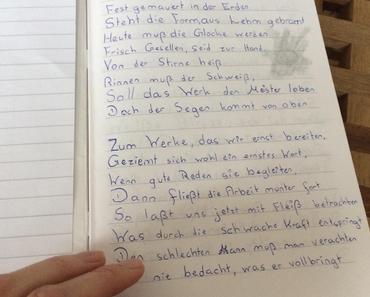 Fest gemauert in der Erden
Steht die Form aus Lehm gebrannt
Heute muß die Glocke werden
Frisch Gesellen, seid zur Hand.
Von der Stirne heiß
Rinnen muß der Schweiß,
Soll das Werk den Meister loben
Doch der Segen kommt von oben
Zum Werke, das wir ernst bereiten,
Geziemt sich wohl ein ernstes Wort,
Wenn gute Reden sie begleiten,
Dann fließt die Arbeit munter fort
So laßt uns jetzt mit Fleiß betrachten
Was durch die schwache Kraft entspringt
Den schlechten Mann muß man verachten
nie bedacht, was er vollbringt